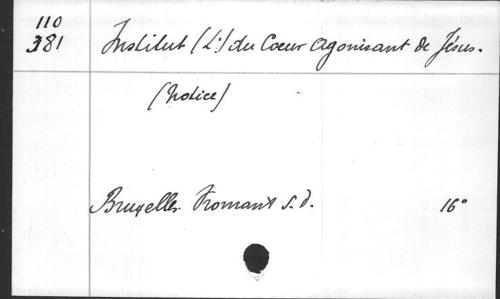 110
381
Institut (L') du Coeur Agonisant de Jésus.
(Notice)
Bruxelles Fromant s.d. 16°